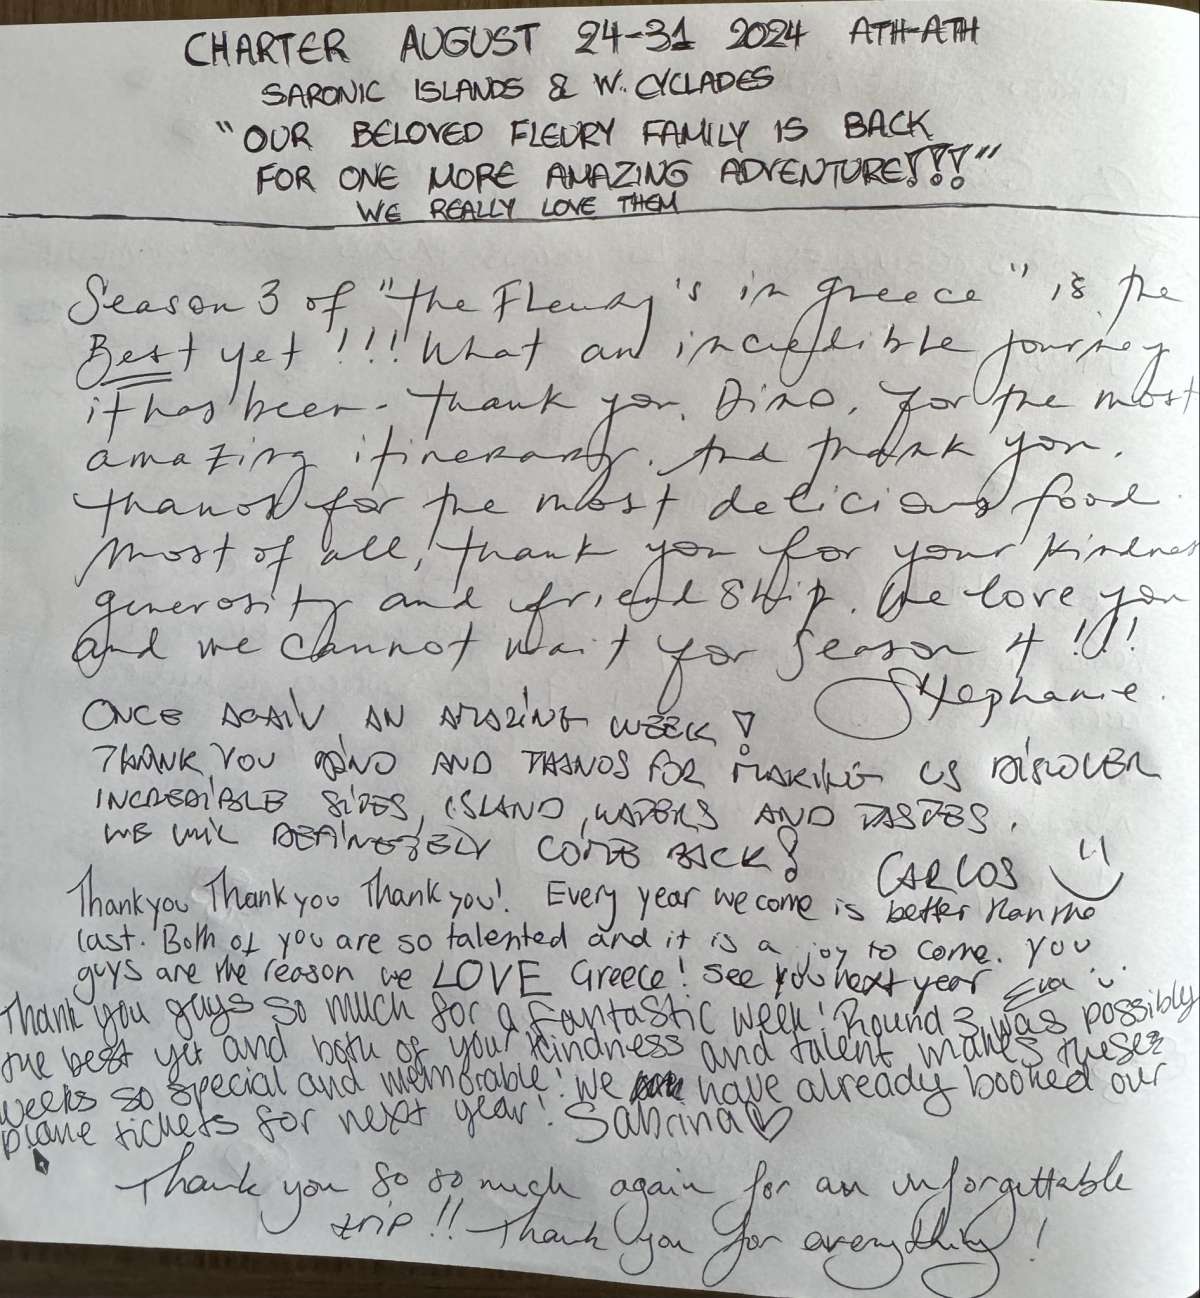 CHARTER AUGUST 24-31 2024 ATH-ATH
SARONIC ISLANDS & W. CYCLADES
"OUR BELOVED FLEURY FAMILY IS BACK
FOR ONE MORE AMAZING ADVENTURE!!!"
WE REALLY LOVE THEM
Season 3 of "the Fleury's in greece" is the
Best yet!!! What an incredible journey
it has been. Thank you, Dino, for the most
amazing itinerary. And thank you,
Thanos for the most delicious food.
Most of all, thank you for your kindnes
generosity and friendship. We love you
and we cannot wait for Season 4!!!
Stephanie.
ONCE AGAIN, AN AMAZING WEEK!
THANK YOU DINO AND THANOS FOR MAKING US DISCOVER
INCREDIBLE SITES, ISLAND, WATERS AND TASTES.
WE WILL DEFINETELY COME BACK!
CARLOS
Thankyou Thankyou Thankyou! Every year we come is better than the
last. Both of you are so talented and it is a joy to come. You
guys are the reason we LOVE Greece! See you next year Eva
Thank you guys so much for a fantastic week! Round 3 was possibly
the best yet and both of your kindness and talent makes these
weeks so special and memorable! We have already booked our
plane tickets for next year! Sabrina
Thank you so so much again for an unforgettable
trip!! Thank you for everything!